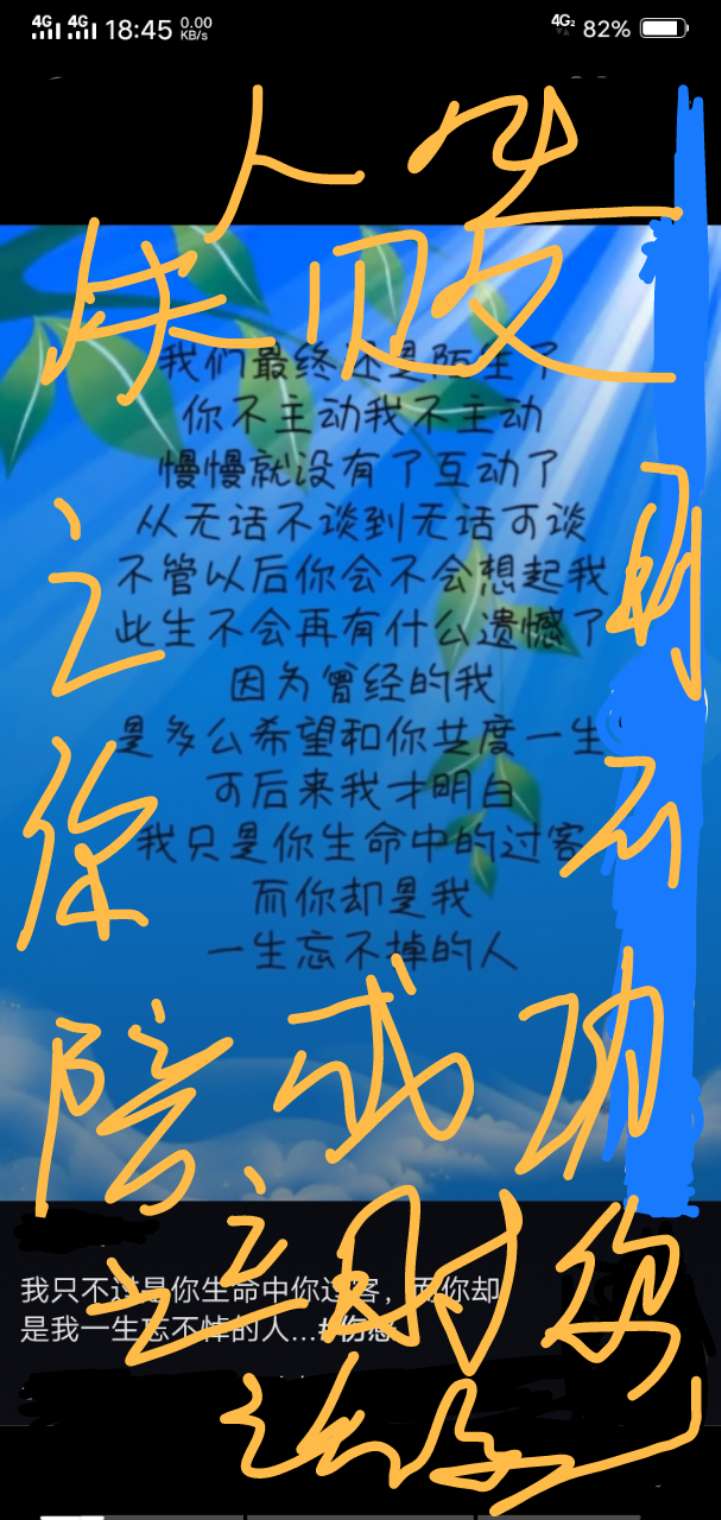 4G 4G 18:45 0.00 KB/s 4G 82%
人生
失败
我们最终还是陌生了
你不主动我不主动
慢慢就没有了互动了
从无话不谈到无话可谈
不管以后你会不会想起我
此生不会再有什么遗憾了
因为曾经的我
是多么希望和你共度一生
可后来我才明白
我只是你生命中的过客
而你却是我
一生忘不掉的人
之
你
陪
成功
之时你
我只不过是你生命中你过客，而你却
是我一生忘不悼的人...#伤感